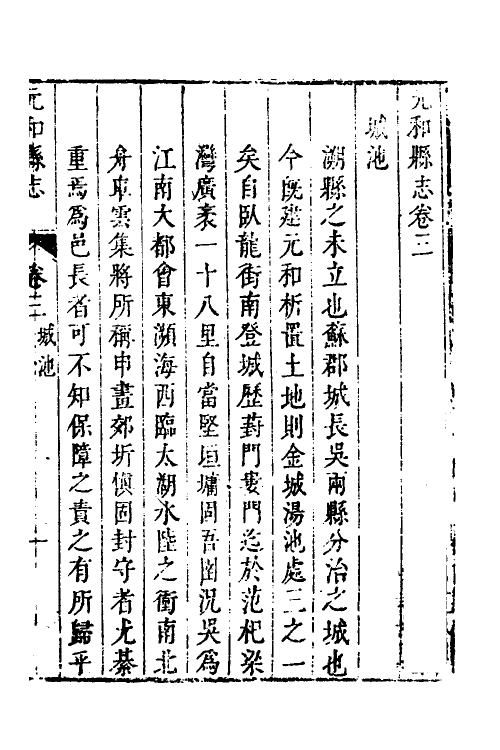 元和縣志卷二
城池
溯縣之未立也蘇郡城長吳兩縣分治之城也
今旣建元和析置土地則金城湯池處三之一
矣自臥龍街南登城歷葑門婁門迄於范杞梁
灣廣袤一十八里自當堅垣墉固吾圉況吳爲
江南大都會東瀕海西臨太湖水陸之衝南北
舟車雲集將所稱申畫郊圻愼固封守者尤綦
重焉爲邑長者可不知保障之責之有所歸乎
元和縣志
卷二
城池